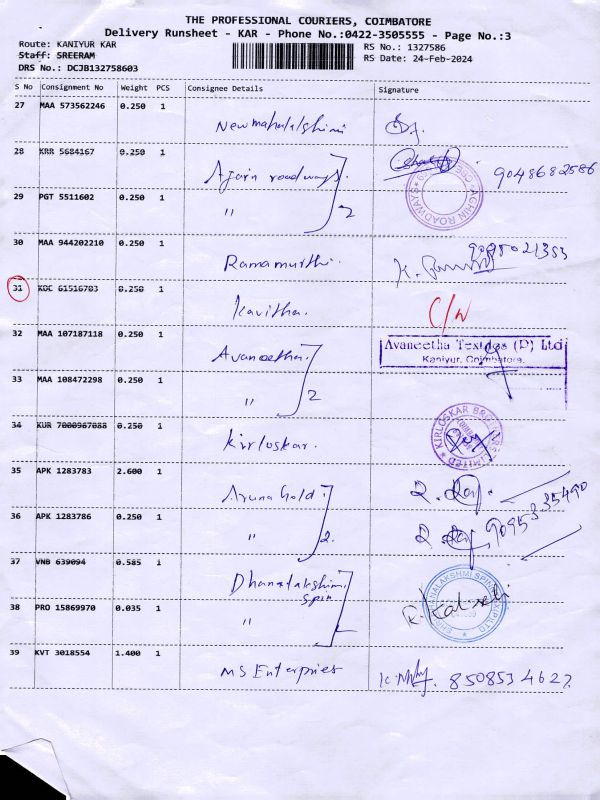 THE PROFESSIONAL COURIERS, COIMBATORE
Delivery Runsheet - KAR - Phone No.:0422-3505555 - Page No.:3
Route: KANIYUR KAR
RS No.: 1327586
Staff: SREERAM
RS Date: 24-Feb-2024
DRS No.: DCJB132758603
S No Consignment No Weight PCS Consignee Details Signature
27 MAA 573562246 0.250 1
Newmahalakshimi
28 KRR 5684167 0.250 1
Ajain roadways.
9048682586
AGHIN ROADWAYS
29 PGT 5511602 0.250 1
" 2
30 MAA 944202210 0.250 1
Ramamurthi.
31 KOC 61516703 0.250 1
Kavitha. C/N
32 MAA 107187118 0.250 1
Avaneetha.
Avaneetha Textiles (P) Ltd
Kaniyur, Coimbatore.
33 MAA 108472298 0.250 1
" 2
34 KUR 7000967088 0.250 1
Kirloskar.
KIRLOSKAR BROTHERS LIMITED
35 APK 1283783 2.600 1
Aruna Gold
36 APK 1283786 0.250 1
" 2.
9095335490
37 VNB 639094 0.585 1
Dhanalakshimi
Spin
38 PRO 15869970 0.035 1
"
39 KVT 3018554 1.400 1
MS Enterpries
8508534627